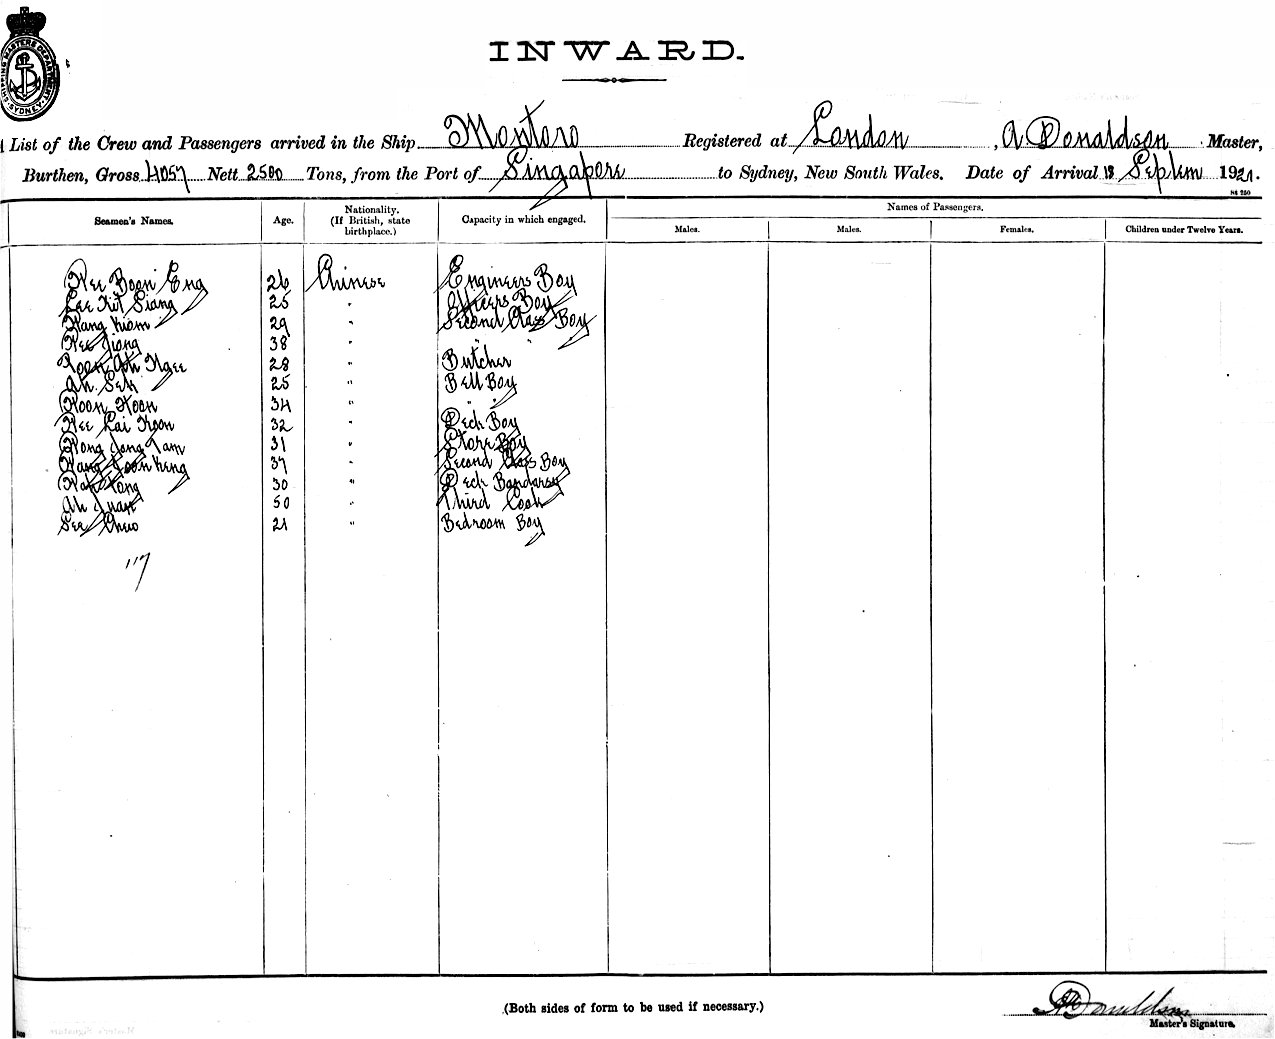 SHIPPING MASTERS DEPARTMENT SYDNEY
INWARD.
List of the Crew and Passengers arrived in the Ship Montoro Registered at London, A Donaldson Master,
Burthen, Gross 4057 Nett 2500 Tons, from the Port of Singapore to Sydney, New South Wales. Date of Arrival 18 Septem 1921.
Names of Passengers.
Seamen's Names. Age. Nationality. (If British, state birthplace.) Capacity in which engaged. Males. Males. Females. Children under Twelve Years.
Kee Boon Eng 26 Chinese Engineers Boy
Lee Kit Siang 25 " Officers Boy
Wang Kiam 29 " Second Class Boy
Kee Jiong 38 " " "
Ah Ngee 28 " Butcher
Ah Seh 25 " Bell Boy
Koon Koon 34 " " "
Kee Kai Koon 32 " Deck Boy
Wong Jong Tam 31 " Store Boy
Wang Keng 37 " Second Class Boy
30 " Deck Bandarey
Ah Juan 50 " Third Cook
See Chuo 21 " Bedroom Boy
117
(Both sides of form to be used if necessary.)
A Donaldson
Master's Signature.